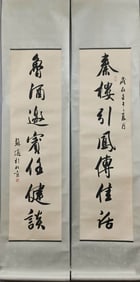 秦樓引鳳傳佳話
魯酒邀賓任健談